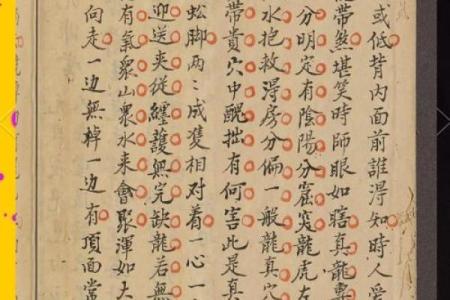 或低背内面前誰淂知時人受
帶煞堪笑時師眼如瞎真龍專
分明定有陰陽分窟突龍虎左
水抱救淂房分偏一般龍真穴
帶貴穴中醜拙有何害此是真
蚣脚兩〻成隻相对着一心一
迎送夾從纏護無完缺龍若無
有氣衆山衆水来會聚渾如大
向走一边無棹一边有頂面當